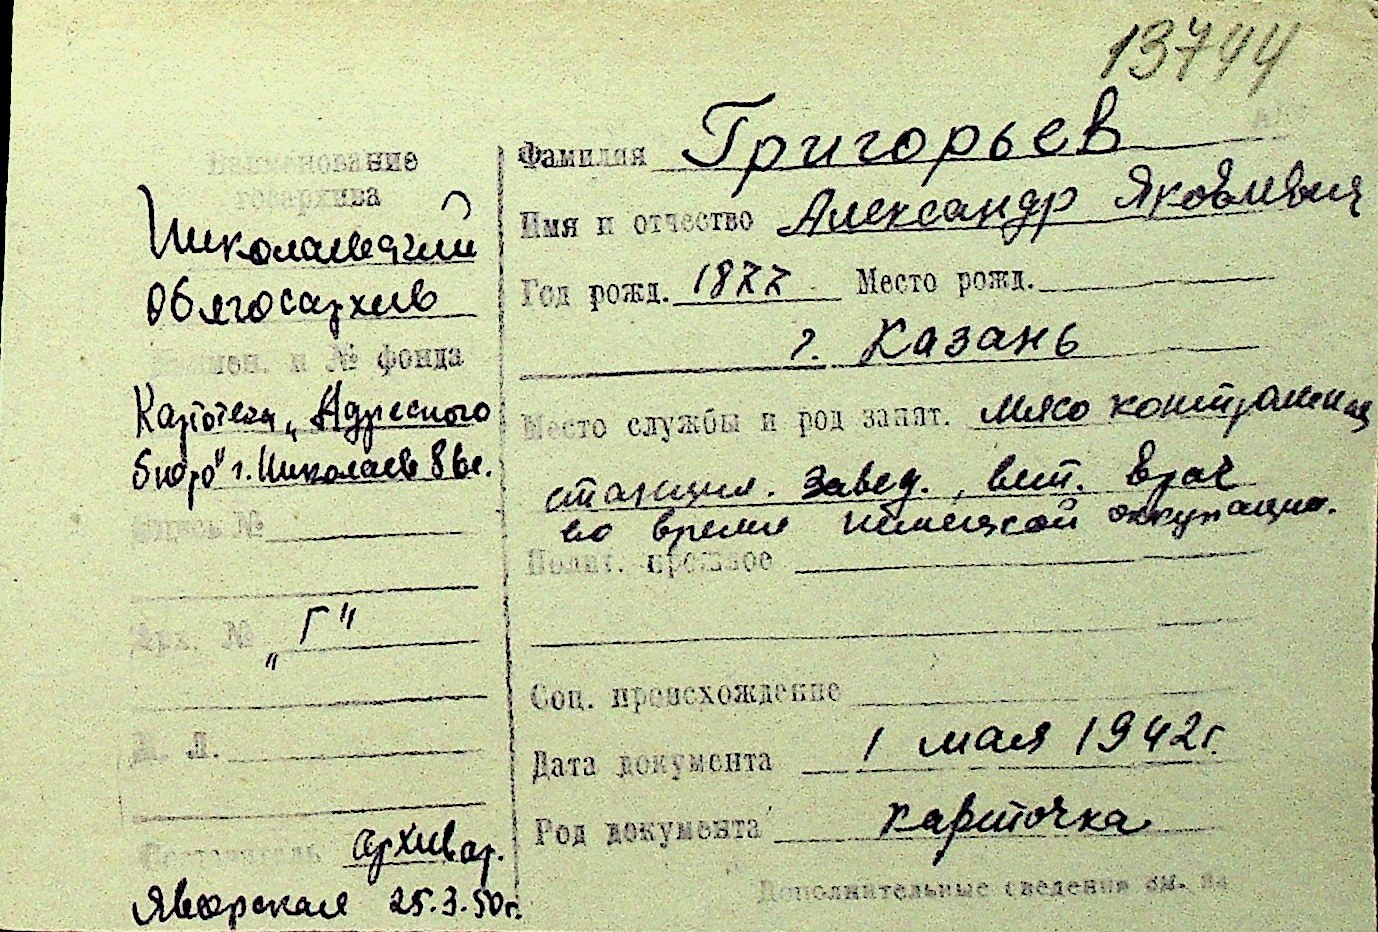 13744
Наименование
госархива
Николаевский
Облгосархив
Наимен. и № фонда
Картотека „Адресного
бюро" г. Николаев
Опись №
Арх. № „Г"
Л. Л.
Составитель архивар.
Яворская 25.3.50г.
Фамилия Григорьев
Имя и отчество Александр Яковлевич
Год рожд. 1877 Место рожд.
г. Казань
Место службы и род занят. Мясо контрольная
станция. Завед., вет. врач
во время немецкой оккупации.
Полит. прошлое
Соц. происхождение
Дата документа 1 мая 1942г.
Род документа карточка
Дополнительные сведения см. на